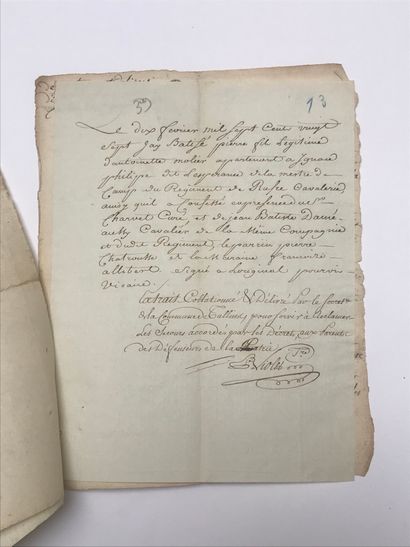 13
Le dix fevrier mil sept Cent vingt
Sept Jay Batisé pierre fil Legitime
d'antoinette molier appartenant a
philippe dit Lesperance de la mestre de
Camp du Regiment de Cavalerie
ainsy quil a Confessé en presence de
Charvet Curé, et de jean Batiste
Cavalier de la Même Compagnie
et dudit Regiment, le parein pierre
et la Maraine francoise
allibert signé a Loriginal
Lextrait Collationné & Délivré Par le Secret.
de la Commune de pour servir a Reclamer
Les Secours accordés par les Décrets aux Parents
des Défenseurs de la Patrie